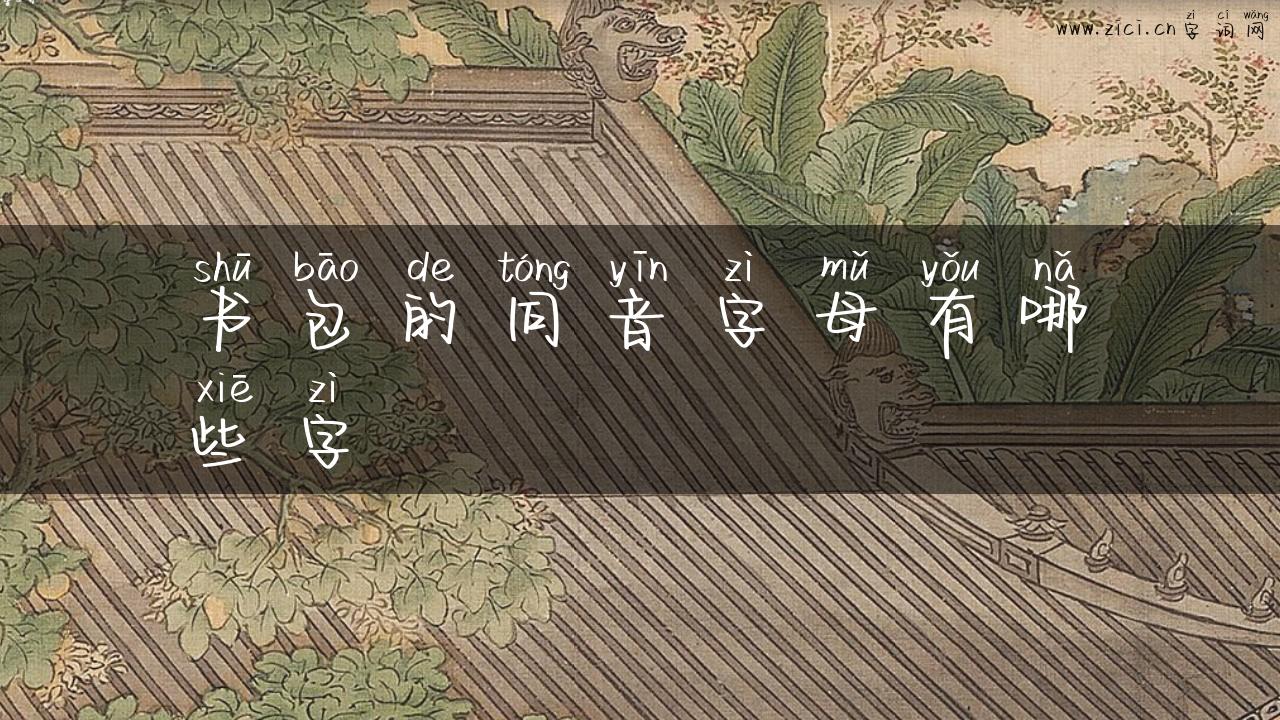 zì cí wǎng
www.zici.cn 字 词 网
shū bāo de tóng yīn zì mǔ yǒu nǎ
书 包 的 同 音 字 母 有 哪
xiē zì
些 字